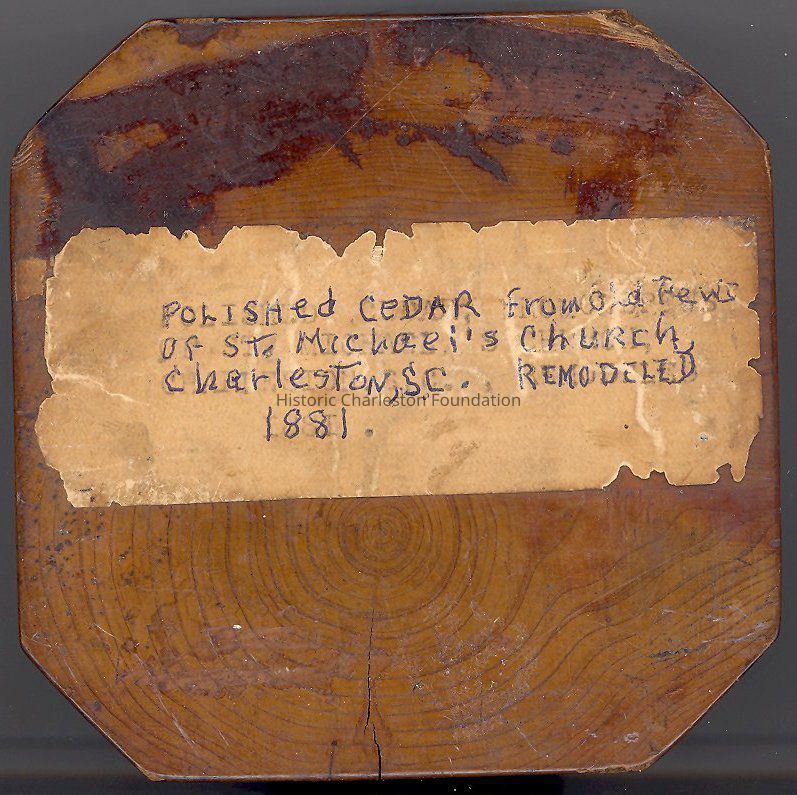 POLISHed CEDAR from old Pews
OF ST. Michael's CHURCH,
CharlesTON, SC. REMODELED
Historic Charleston Foundation
1881.